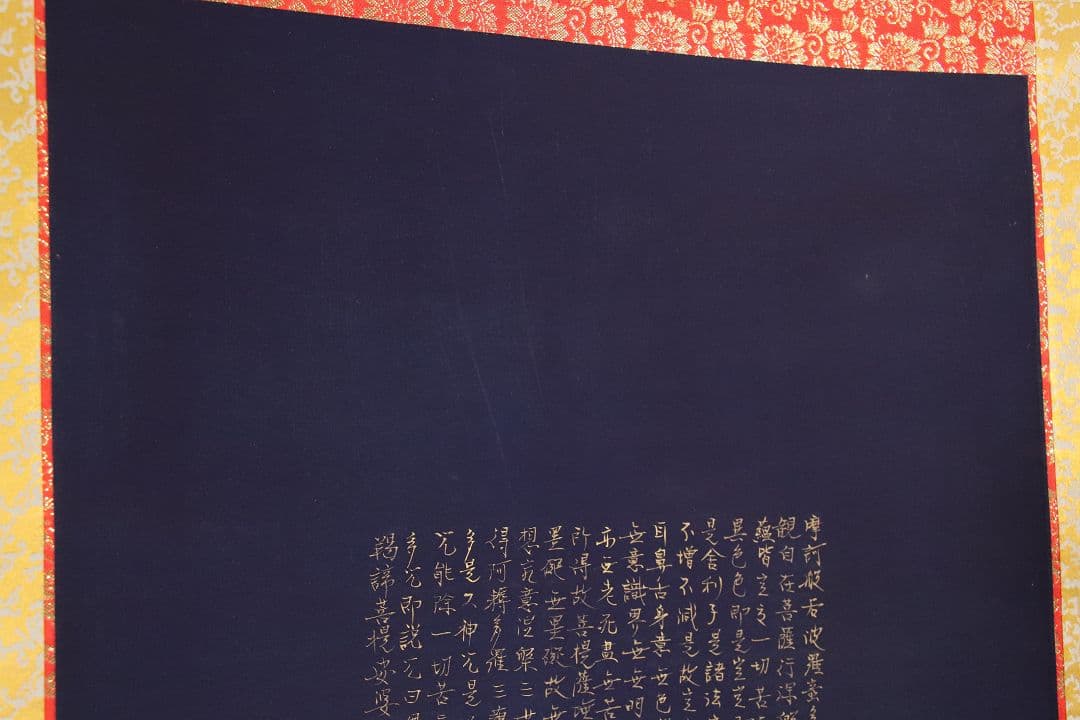 摩訶般若波羅蜜多
観自在菩薩行深般
蘊皆空度一切苦
異色色即是空空
是舎利子是諸法
不増不減是故空
耳鼻舌身意無色
無意識界無無明
亦無老死盡無苦
所得故菩提薩埵
罣礙無罣礙故無
想究竟涅槃三世
得阿耨多羅三藐
多是大神咒是
咒能除一切苦
多咒即説咒曰
羯諦菩提娑婆